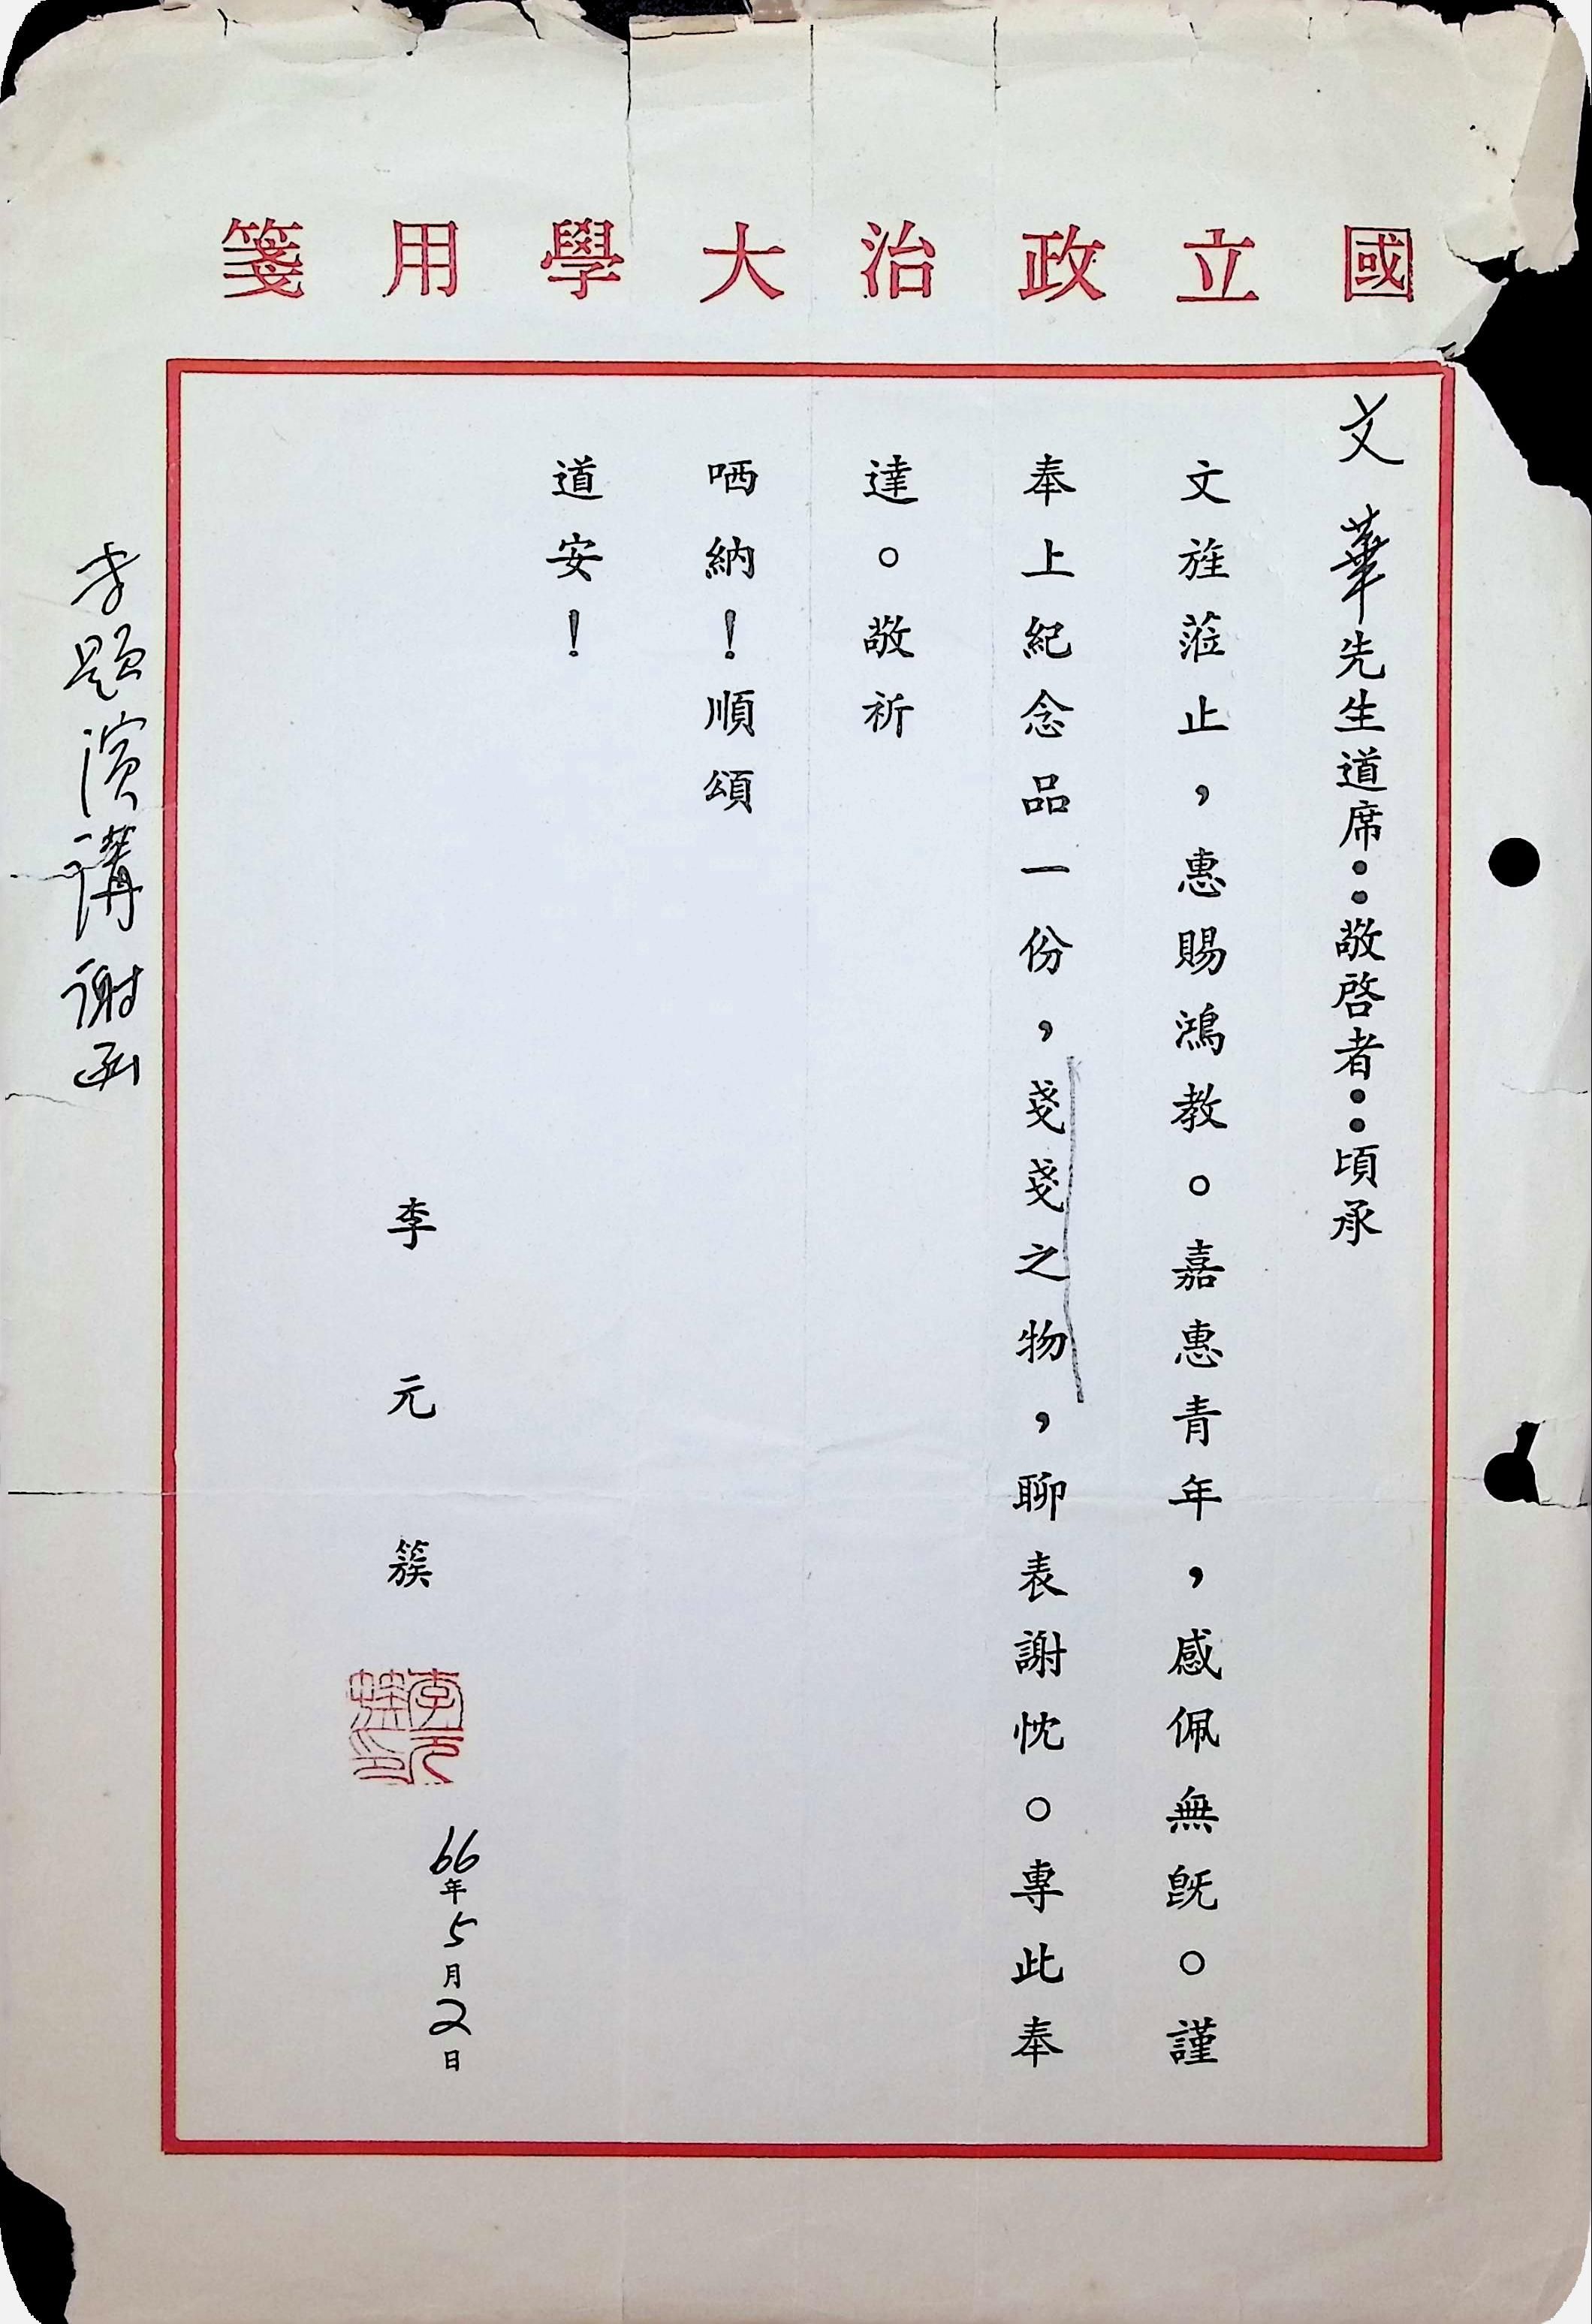 國立政治大學用箋
文華先生道席：敬啓者：頃承
文旌蒞止，惠賜鴻教。嘉惠青年，感佩無旣。謹
奉上紀念品一份，戔戔之物，聊表謝忱。專此奉
達。敬祈
哂納！順頌
道安！
李元簇
李元簇印
66年5月2日
專題演講謝函